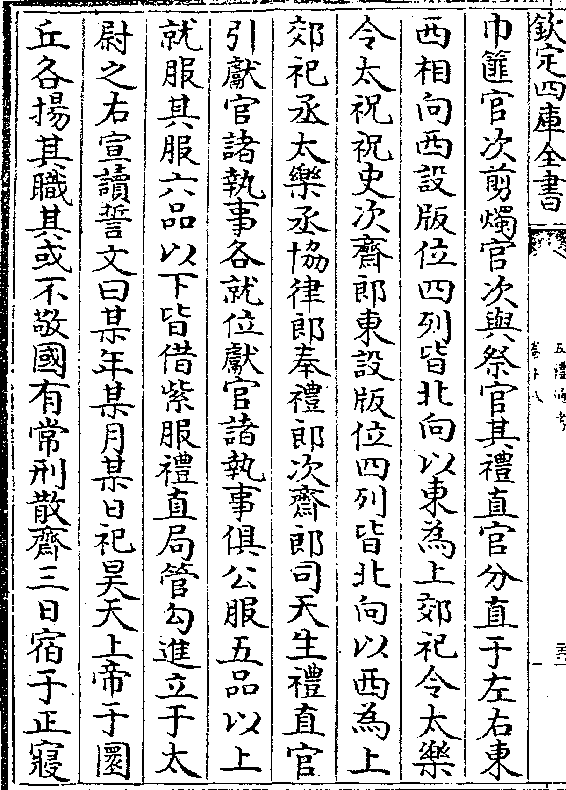 欽定四庫全書
五禮通考
卷十八
巾篚官次剪燭官次與祭官其禮直官分直于左右東
西相向西設版位四列皆北向以東為上郊祀令太樂
令太祝祝史次齋郎東設版位四列皆北向以西為上
郊祀丞太樂丞協律郎奉禮郎次齋郎司天生禮直官
引獻官諸執事各就位獻官諸執事俱公服五品以上
就服其服六品以下皆借紫服禮直局管勾進立于太
尉之右宣讀誓文曰某年某月某日祀昊天上帝于圜
丘各揚其職其或不敬國有常刑散齊三日宿于正寢